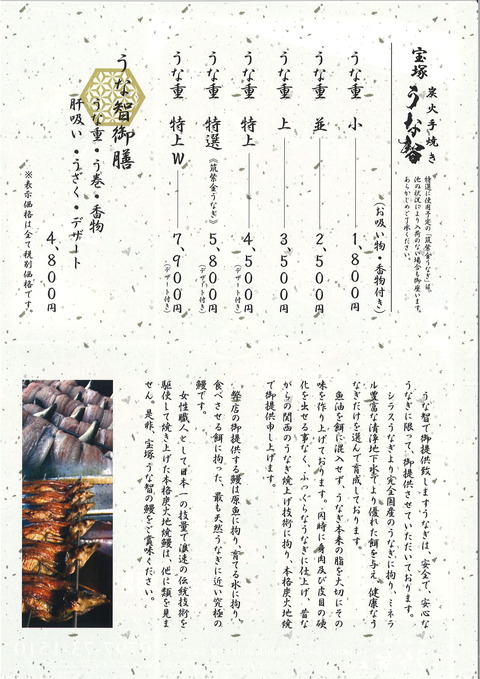 炭火手焼き
宝塚 うな智
特選に使用予定の「筑紫金うなぎ」は、
池の状況により入荷のない場合も御座います。
あらかじめご了承ください。
(お吸い物・香物付き)
うな重 小 1,800円
うな重 並 2,500円
うな重 上 3,500円
うな重 特上 4,500円
(デザート付き)
うな重 特選《筑紫金うなぎ》 5,800円
(デザート付き)
うな重 特上W 7,900円
(デザート付き)
うな智御膳
うな重・う巻・香物
肝吸い・うざく・デザート
4,800円
※表示価格は全て税別価格です。
うな智で御提供致しますうなぎは、安全で、安心な
うなぎに限って、御提供させていただいております。
シラスうなぎより完全国産のうなぎに拘り、ミネラ
ル豊富な清浄地下水でより優れた餌を与え、健康なう
なぎだけを選んで育成しております。
魚油を餌に混入せず、うなぎ本来の脂を大切にその
味を作り上げております。同時に身肉及び皮目の硬
化を出せる事なく、ふっくらなうなぎに仕上げ、昔な
がらの関西のうなぎ焼上げ技術に拘り、本格炭火地焼
で御提供申し上げます。
弊店の御提供する鰻は原魚に拘り、育てる水に拘り、
食べさせる餌に拘った、最も天然うなぎに近い究極の
鰻です。
女性職人として日本一の技量で浪速の伝統技術を
駆使して焼き上げた本格炭火地焼鰻は、他に類を見ま
せん。是非、宝塚うな智の鰻をご賞味ください。